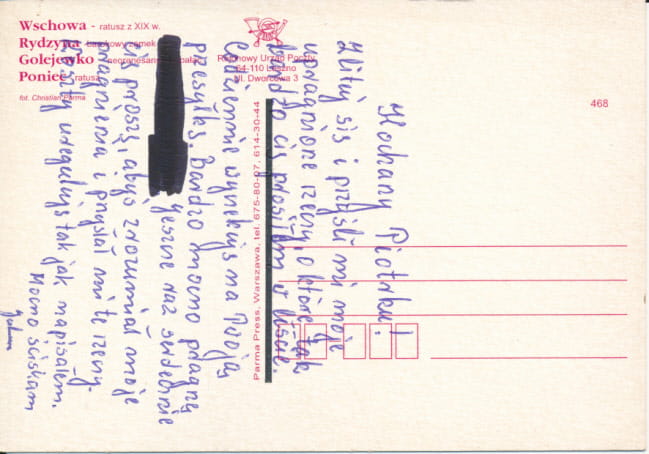 Wschowa - ratusz z XIX w.
Rydzyna - barokowy zamek
Golejewko - neorenesansowy pałac
Poniec - ratusz
fot. Christian Parma
Rejonowy Urząd Poczty
64-110 Leszno
ul. Dworcowa 3
468
Parma Press, Warszawa, tel. 675-80-07, 614-30-44
Kochany Piotrku!
Zlituj się i prześlij mi moje
upragnione rzeczy, o które tak
bardzo cię prosiłem w liście.
Codziennie wyczekuję na Twoją
przesyłkę. Bardzo mocno pragnę
jeszcze raz serdecznie
cię proszę, abyś zrozumiał moje
pragnienia i przysłał mi te rzeczy.
Koszty ureguluję tak jak napisałem.
Mocno ściskam